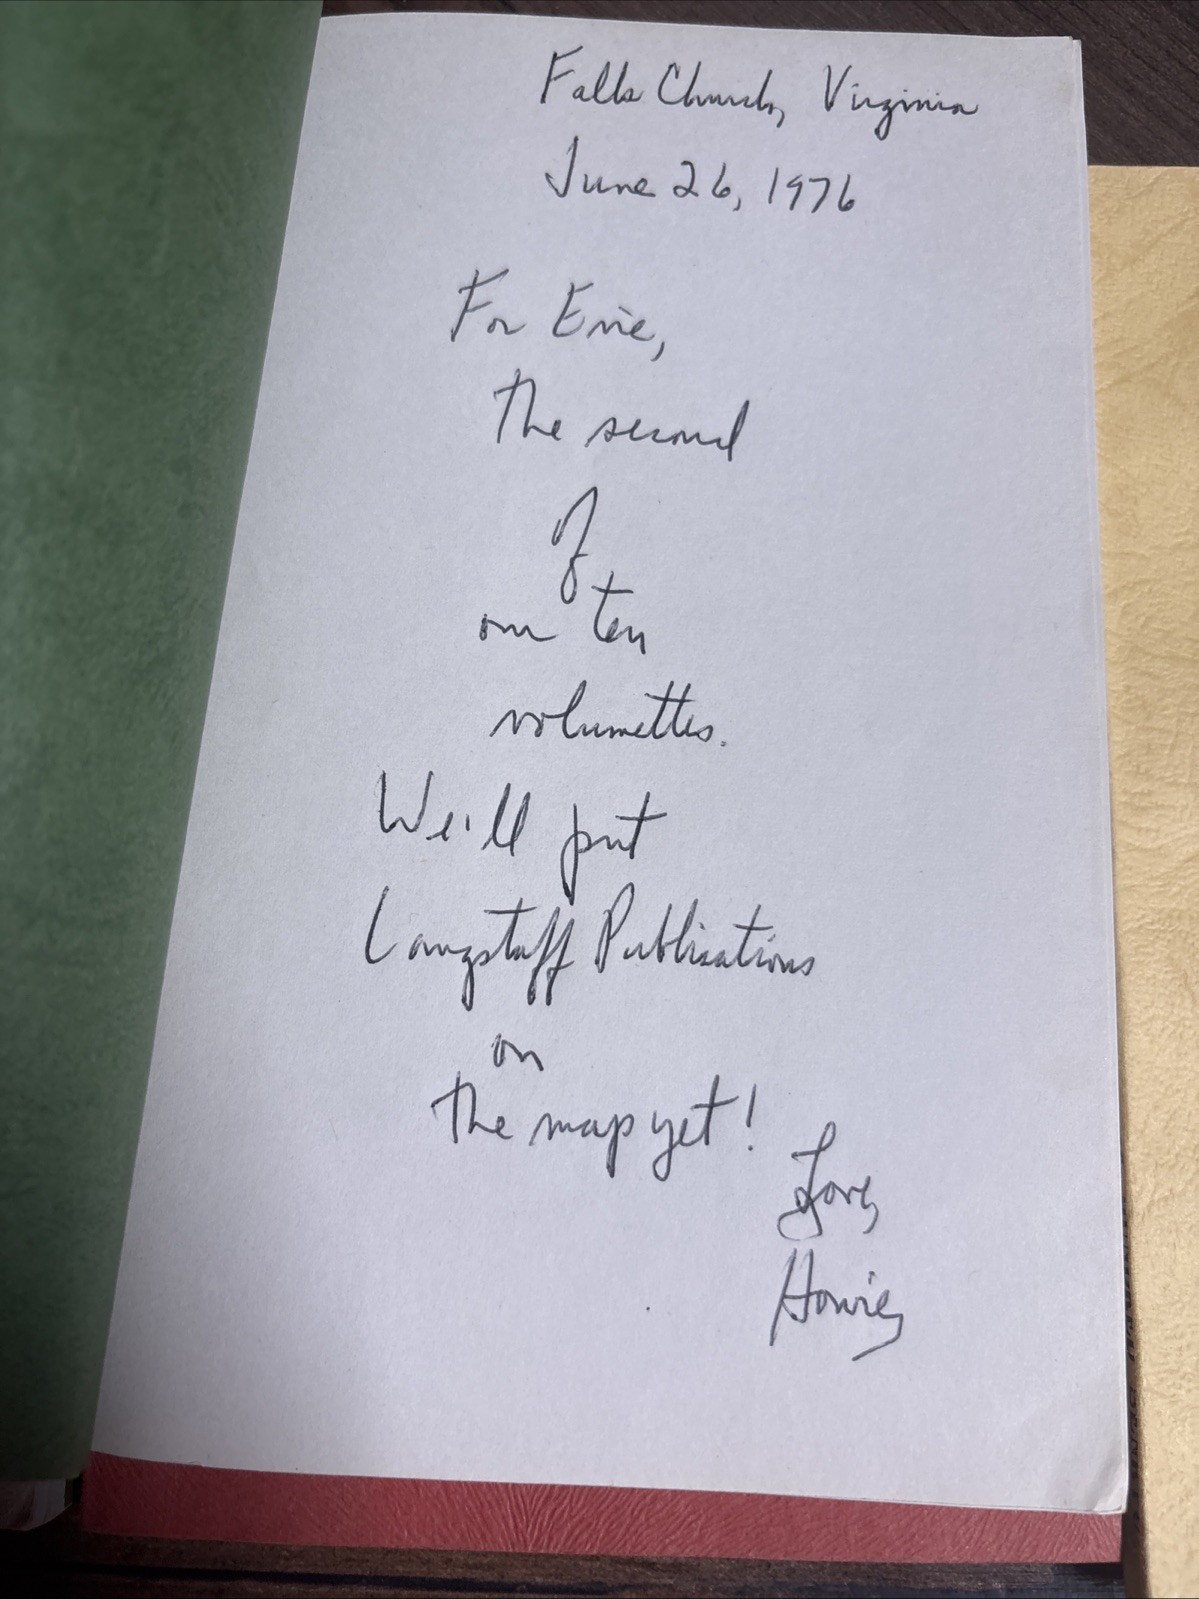 Falls Church, Virginia
June 26, 1976
For Erie,
The second
of
our ten
volumettes.
We'll put
Langstaff Publications
on
the map yet!
Love,
Howie